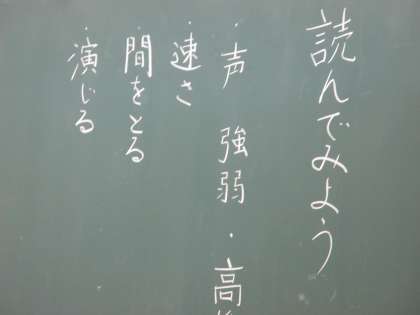 読んでみよう
・声 強弱・高
・速さ
・間をとる
・演じる